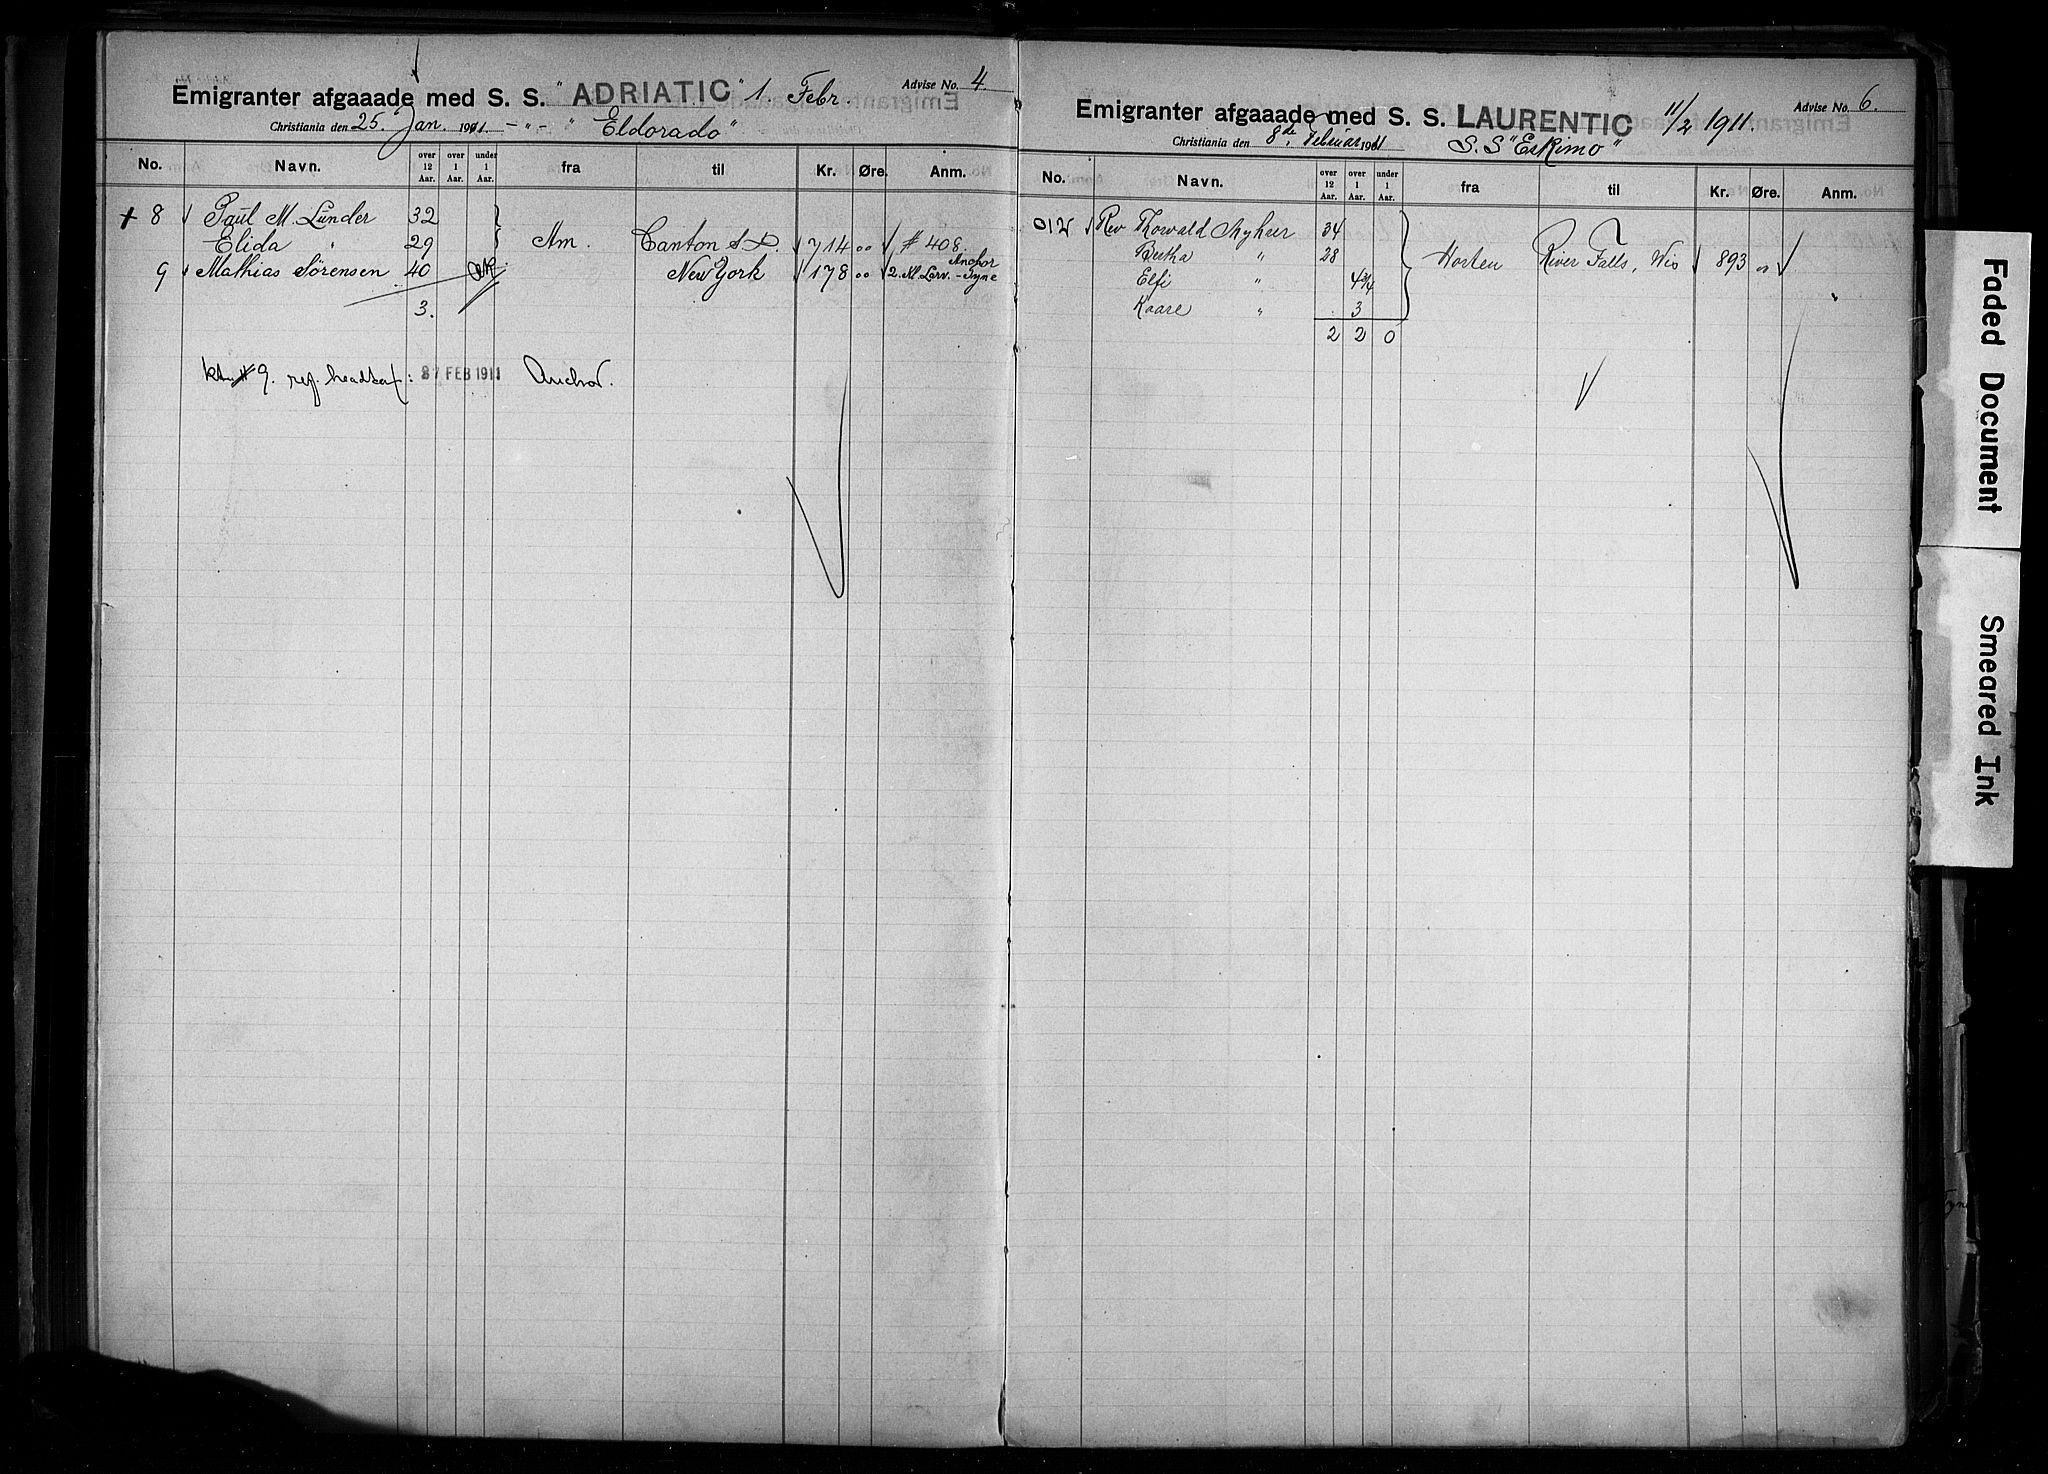 Emigranter afgaaade med S. S. "ADRIATIC" 1. Febr. Advise No. 4.
Christiania den 25. Jan. 1911. -"- "Eldorado"
No. Navn. over 12 Aar. over 1 Aar. under 1 Aar. fra til Kr. Øre. Anm.
8 Paul M. Lunder 32
Elida " 29 Am. Canton S. D. 714 00 # 408.
9 Mathias Sørensen 40 New York 178 00 2. Kl. Larv. - Tyne Anchor
3.
# 9. ref. 27 FEB 1911 Anchor.
Emigranter afgaaade med S. S. LAURENTIC 11/2 1911. Advise No. 6.
Christiania den 8de Februar 1911 S.S "Eskimo"
No. Navn. over 12 Aar. over 1 Aar. under 1 Aar. fra til Kr. Øre. Anm.
012 Rev Thorvald 34
Bertha " 28 Horten River Falls, Wis 893 00
Elfi " 4 3/4
Kaare " 3
2 2 0
Faded Document
Smeared Ink